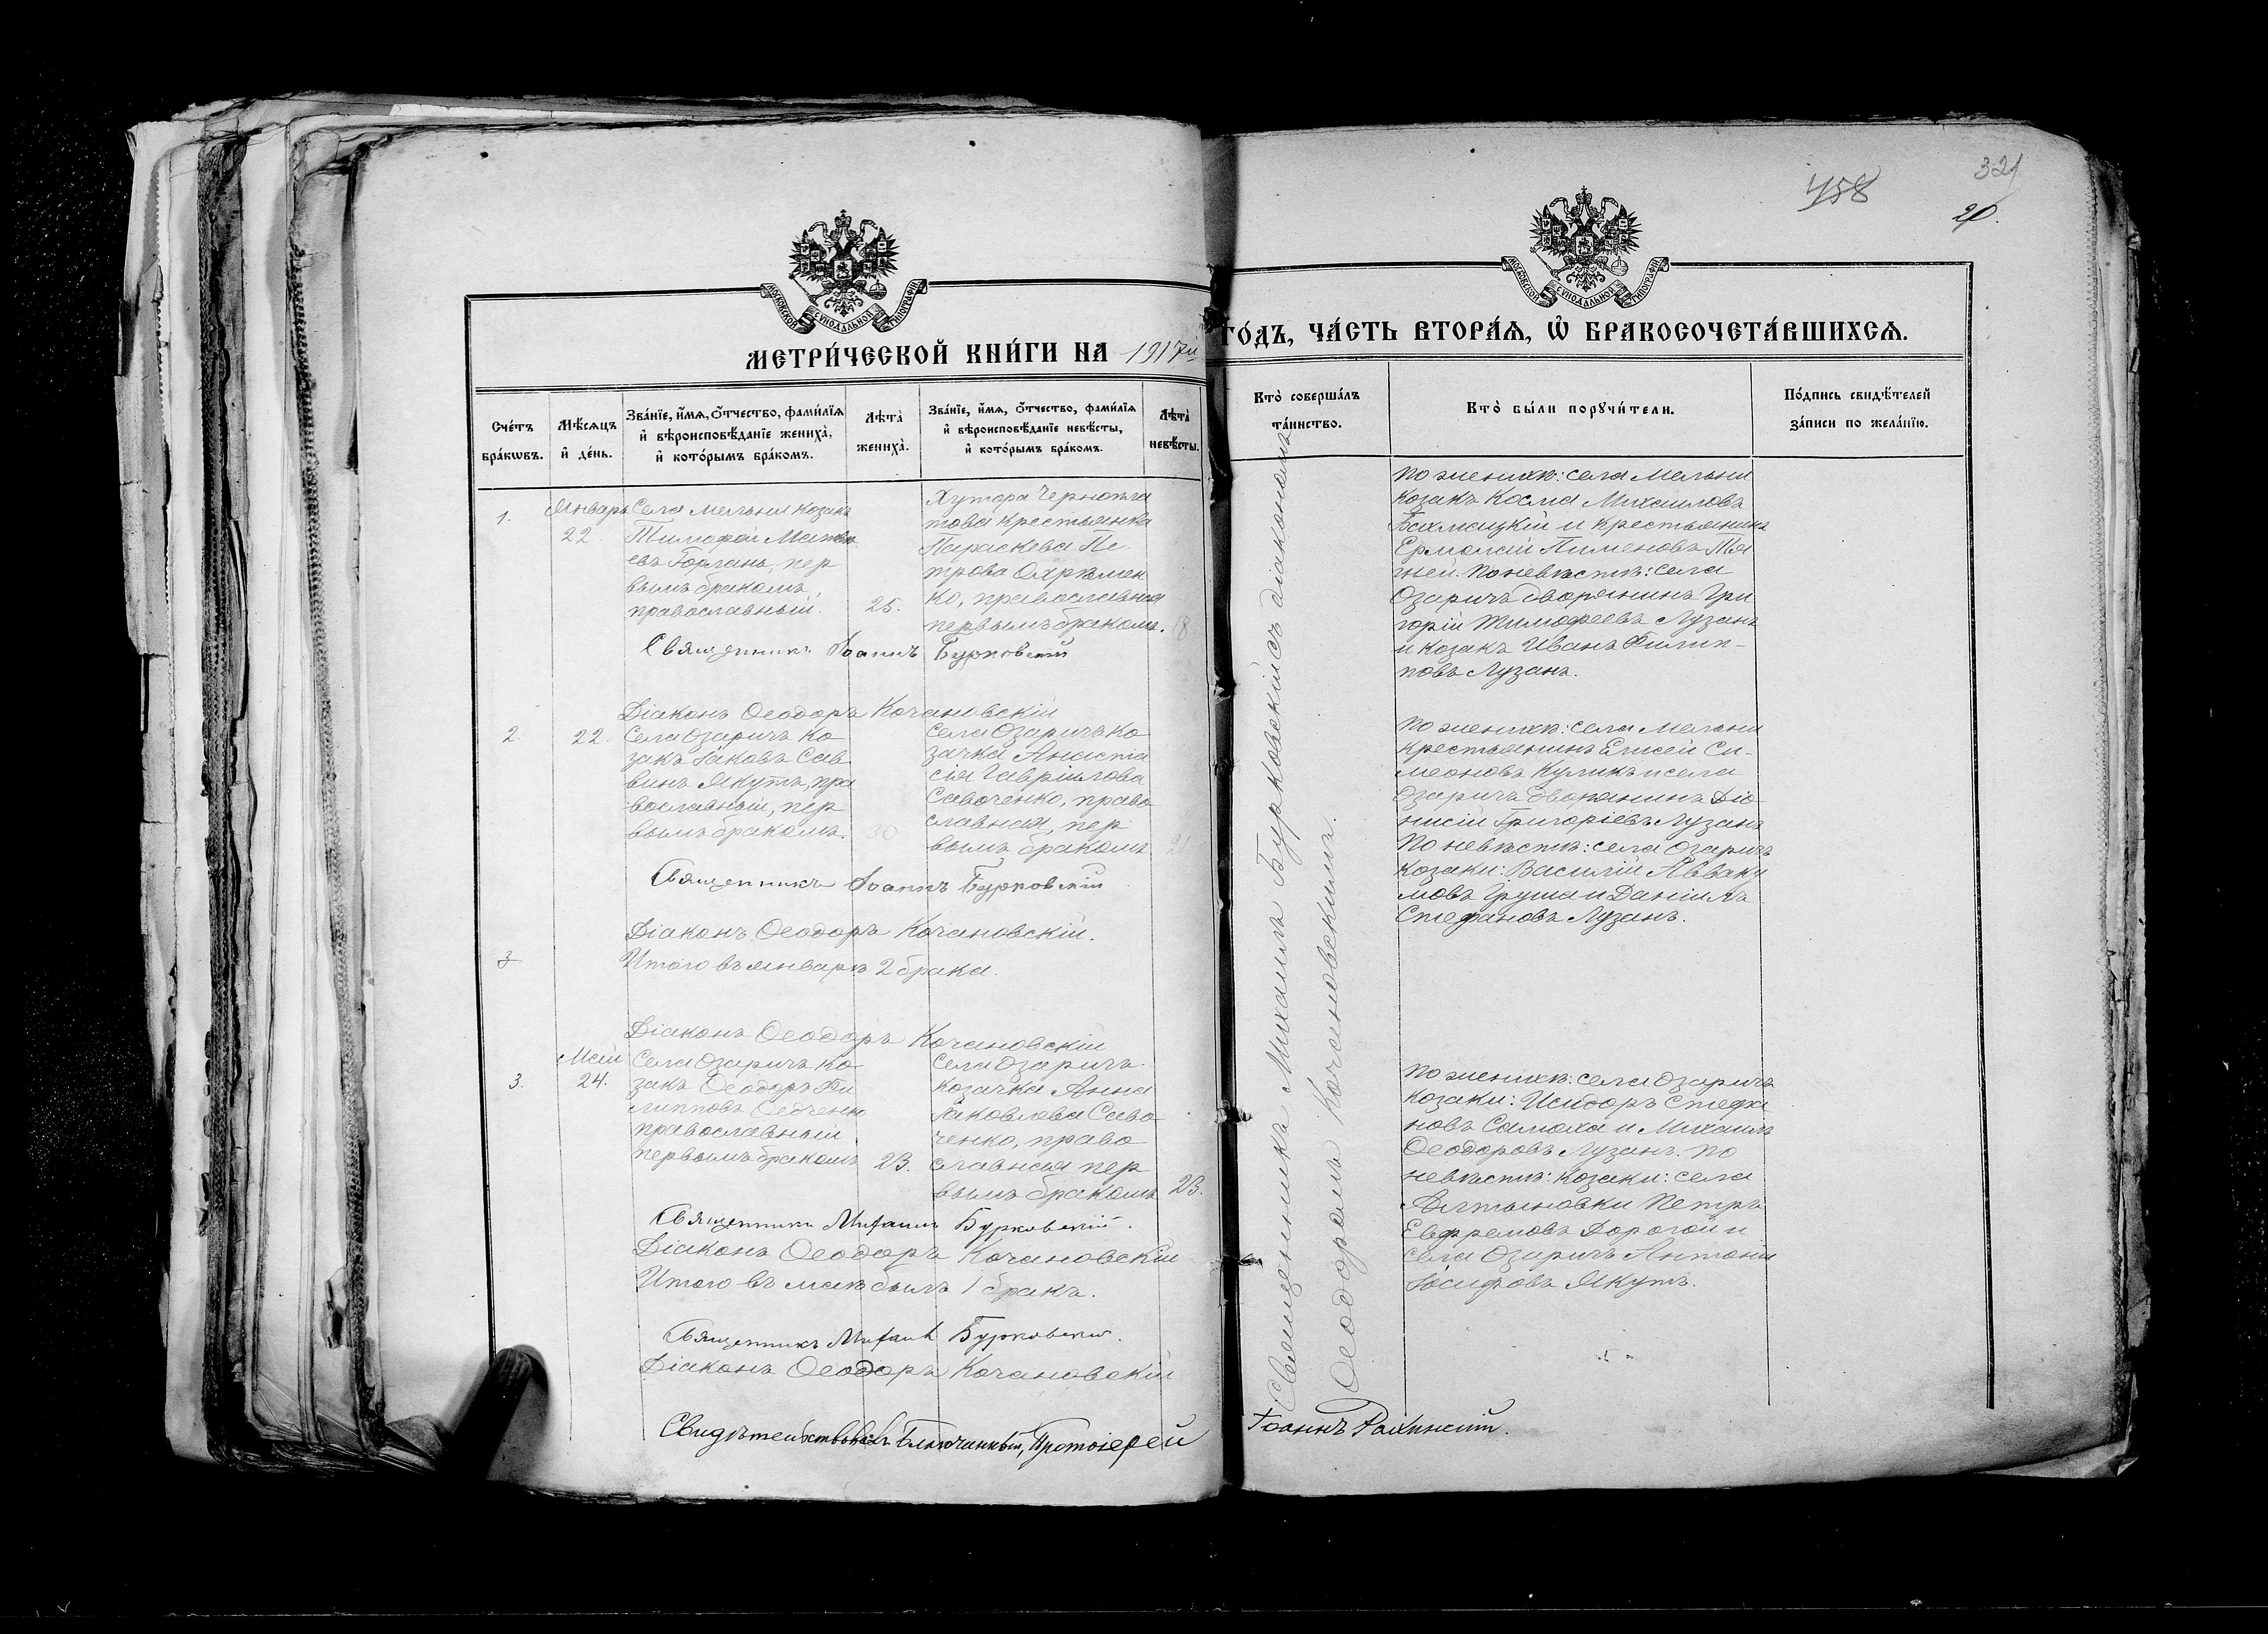 458
321
20.
МОСКОВСКОЙ СѴНОДАЛЬНОЙ ТИПОГРАФІИ
МОСКОВСКОЙ СѴНОДАЛЬНОЙ ТИПОГРАФІИ
МЕТРИ́ЧЕСКОЙ КНИ́ГИ НА 1917й ГО́ДЪ, ЧА́СТЬ ВТОРА́Ѧ, Ѽ БРАКОСОЧЕТА́ВШИХСѦ.
Сче́тъ
бра́кѡвъ.
Мѣ́сѧцъ
и҆ де́нь.
Зва́нїе, и҆́мѧ, ѻ҆́тчество, фами́лїѧ
и҆ вѣроисповѣ́данїе жениха̀,
и҆ кото́рымъ бра́комъ.
Лѣта̀
жениха̀.
Зва́нїе, и҆́мѧ, ѻ҆́тчество, фами́лїѧ
и҆ вѣроисповѣ́данїе невѣ́сты,
и҆ кото́рымъ бра́комъ.
Лѣта̀
невѣ́сты.
Кто̀ соверша́лъ
та́инство.
Кто̀ бы́ли порꙋчи́тели.
По́дпись свидѣ́телей
за́писи по жела́нїю.
1.
Январь
22.
Села Мельни козакъ
Тимофей Матвѣ
евъ Горлань, пер
вымъ бракомъ,
православный.
25.
Хутора Черноплa
това крестьянка
Параскева Пе-
трова Охрѣмен
ко, православная
первымъ бракомъ.
18
По женихѣ: села Мельни
козакъ Косма Михаиловъ
Бахмацкій и крестьянинъ
Ермолай Пименовъ Тя
гней. По невѣстѣ: села
Озаричъ дворянинъ Гри
горій Тимофеевъ Лузанъ
и козакъ Иванъ Филип-
повъ Лузанъ.
Священникъ Іоаннъ Бурковскій
Діаконъ Ѳеодоръ Кочановскій
2.
22.
Села Озаричъ ко
закъ Іаковъ Сав
винъ Якутъ, пра
вославный, пер
вымъ бракомъ.
30
Села Озаричъ ко
зачка Анаста
сія Гавріилова
Савоченко, право
славная, пер
вымъ бракомъ
21
По женихѣ: села Мельни
крестьянинъ Елисей Си-
меоновъ Куликъ и села
Озаричъ дворянинъ Діо-
нисій Григоріевъ Лузанъ
По невѣстѣ: села Озаричъ
козаки: Василій Авваку
мовъ Груша и Даніилъ
Стефановъ Лузанъ.
Священникъ Іоаннъ Бурковскій
Діаконъ Ѳеодоръ Кочановскій.
3
Итого въ январѣ 2 брака.
Діаконъ Ѳеодоръ Кочановскій
3.
Май
24.
Села Озаричъ ко
закъ Ѳеодоръ Фи
липповъ Ѳедченко
православный
первымъ бракомъ
23.
Села Озаричъ
козачка Анна
Іаковлева Саво-
ченко, право
славная пер
вымъ бракомъ
23.
По женихѣ: села Озаричъ
козаки: Исидоръ Стефа
новъ Самоха и Михаилъ
Ѳеодоровъ Лузанъ. По
невѣстѣ: козаки: села
Алтыновки Петръ
Евфремовъ Дорогой и
села Озаричъ Антоній
Іосифовъ Якутъ.
Священникъ Михаилъ Бурковскій.
Діаконъ Ѳеодоръ Кочановскій
Итого въ маѣ былъ 1 бракъ.
Священникъ Михаилъ Бурковскій.
Діаконъ Ѳеодоръ Кочановскій
Священникъ Михаилъ Бурковскій съ діакономъ
Ѳеодоромъ Кочановскимъ.
Свидѣтельствовалъ Благочинный, Протоіерей Іоаннъ